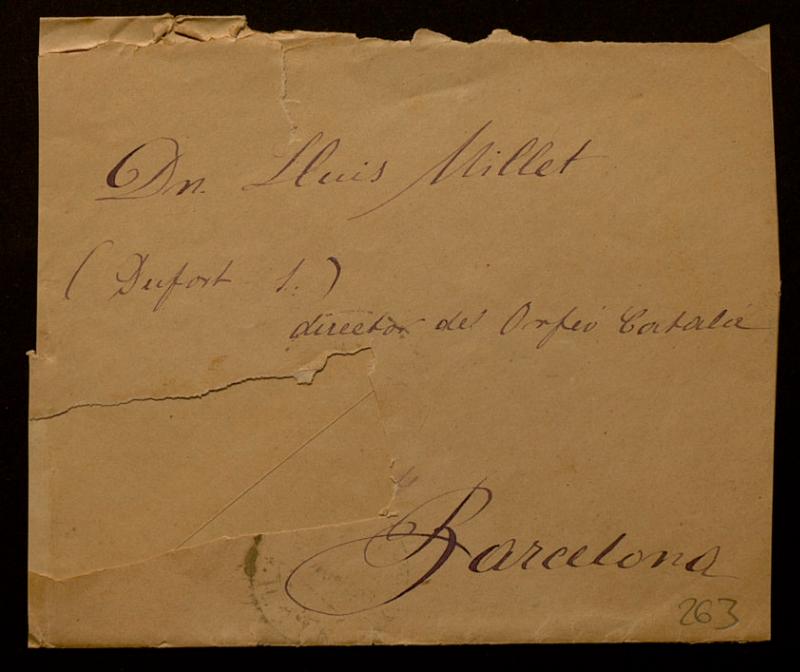 Dn. Lluis Millet
(Dufort 1.)
director del Orfeó Catalá
Barcelona
263